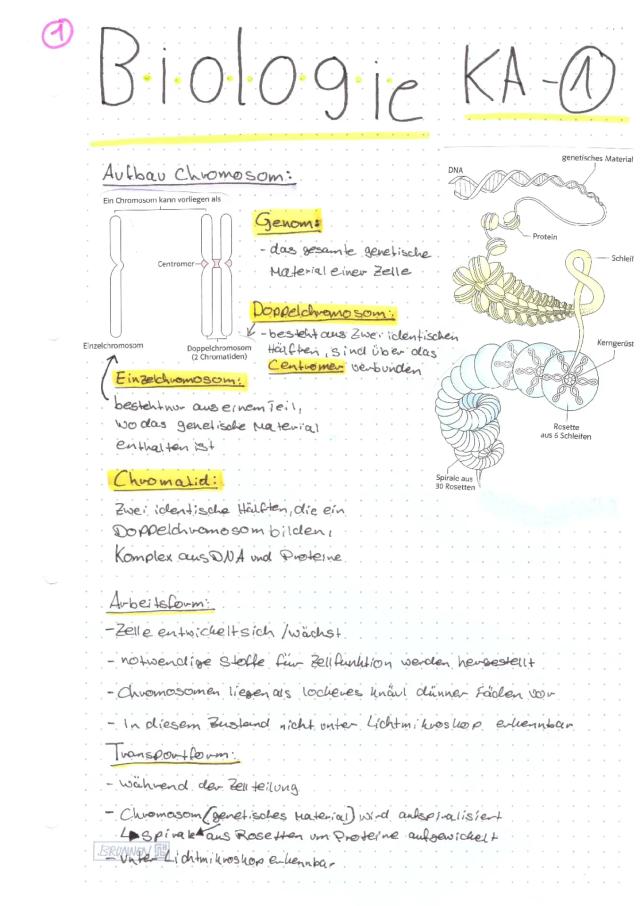 1
Biologie KA-1
Aufbau Chromosom:
Ein Chromosom kann vorliegen als
Centromer
Einzelchromosom
Doppelchromosom
(2 Chromatiden)
Genom:
- das gesamte genetische
Material einer Zelle
Doppelchromosom:
- besteht aus zwei identischen
Hälften, sind über das
Centromer verbunden
Einzelchromosom:
besteht nur aus einem Teil,
wo das genetische Material
enthalten ist
DNA
genetisches Material
Protein
Schleif
Kerngerüst
Rosette
aus 6 Schleifen
Spirale aus
30 Rosetten
Chromatid:
Zwei identische Hälften, die ein
Doppelchromosom bilden,
Komplex aus DNA und Proteine
Arbeitsform:
- Zelle entwickelt sich / wächst
- notwendige Stoffe für Zellfunktion werden hergestellt
- Chromosomen liegen als lockeres Knäul dünner Fäden vor
- In diesem Zustand nicht unter Lichtmikroskop erkennbar
Transportform:
- während der Zellteilung
- Chromosom (genetisches Material) wird aufspiralisiert
Spirale aus Rosetten um Proteine aufgewickelt
- unter Lichtmikroskop erkennbar
BRUNNEN